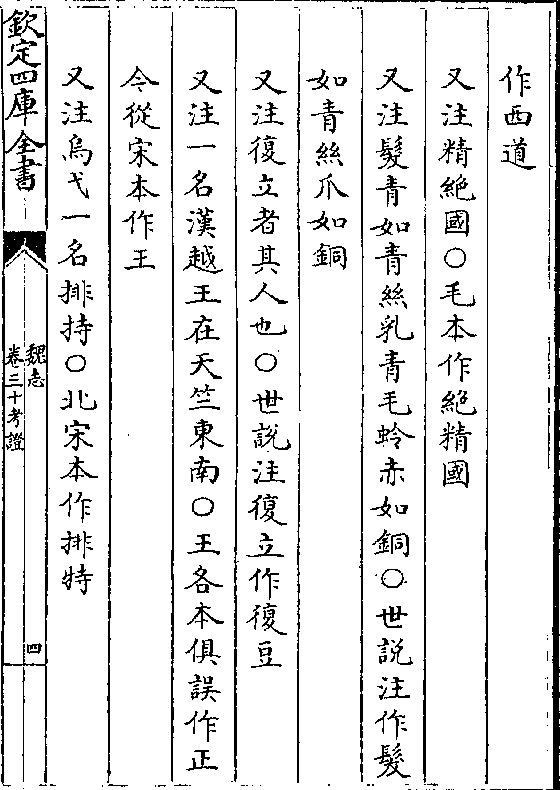 作西道
又注精絶國○毛本作絶精國
又注髮青如青絲乳青毛蛉赤如銅○世説注作髮
如青絲爪如銅
又注復立者其人也○世説注復立作復豆
又注一名漢越王在天竺東南○王各本俱誤作正
今從宋本作王
又注烏弋一名排持○北宋本作排特
欽定四庫全書
魏志
卷三十考證
四